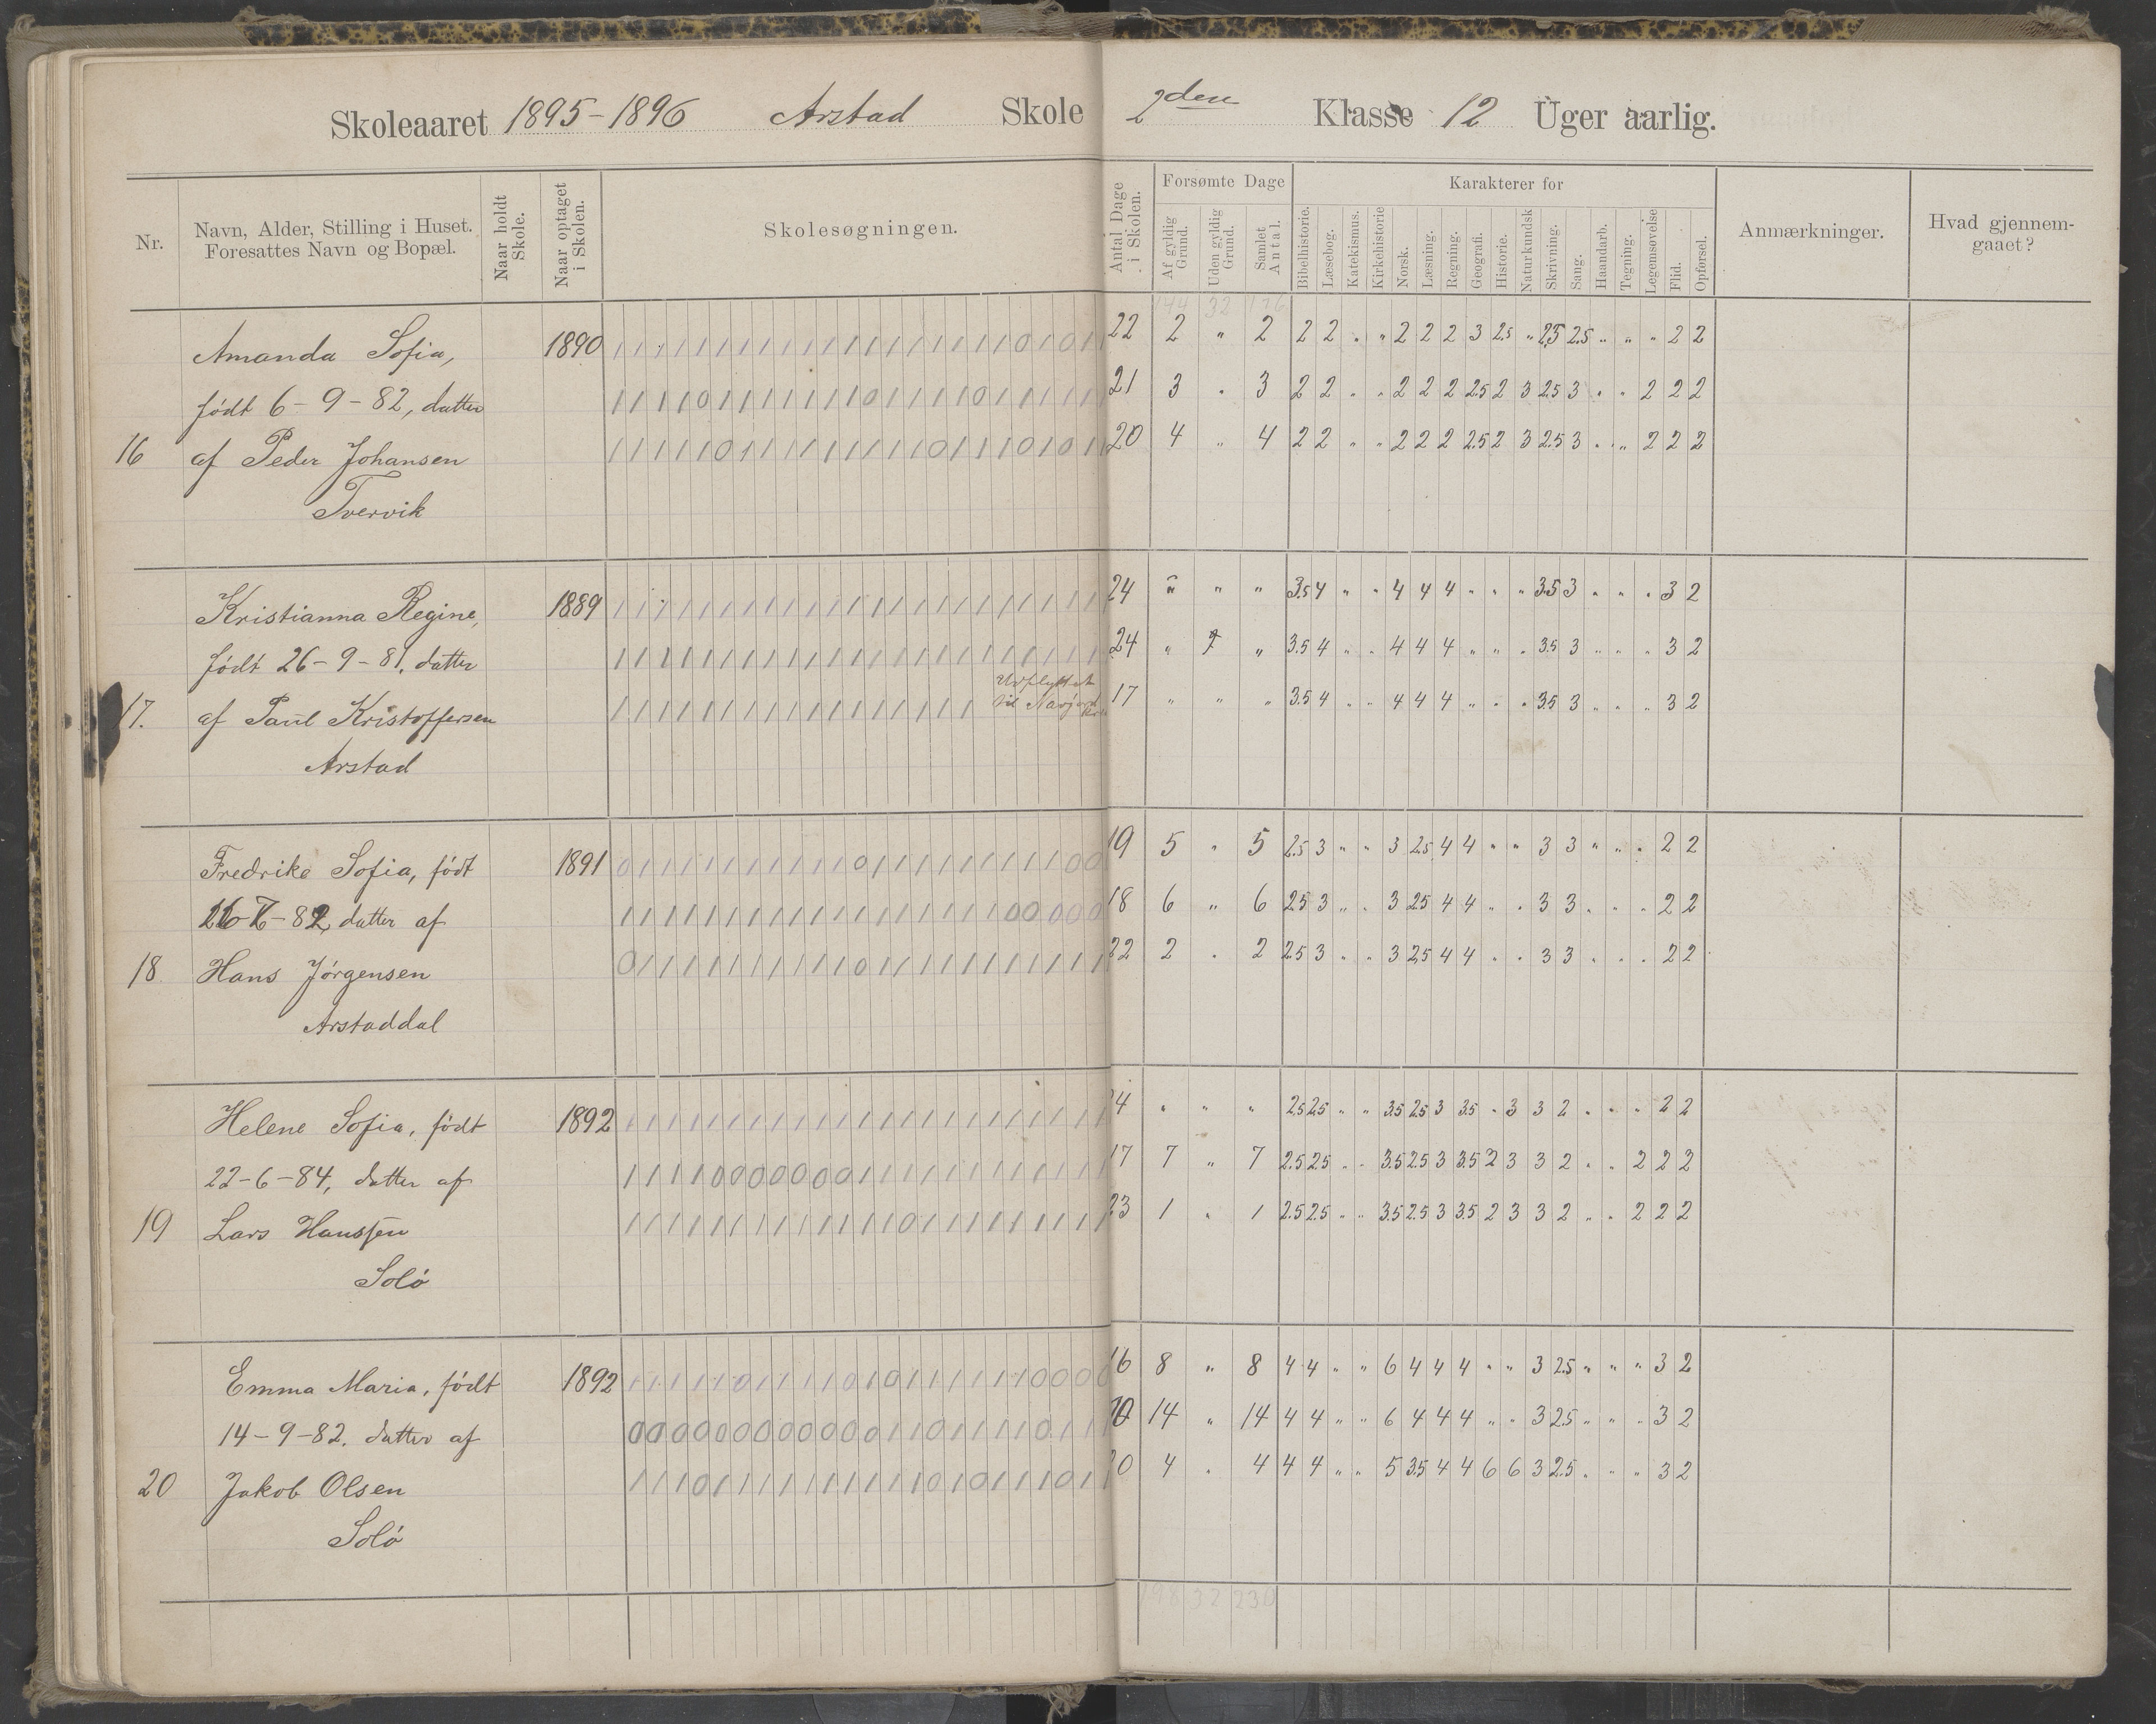 Skoleaaret 1895-1896 Arstad Skole 2den Klasse 12 Uger aarlig.
Nr.
Navn, Alder, Stilling i Huset.
Foresattes Navn og Bopæl.
Naar holdt
Skole.
Naar optaget
i Skolen.
Skolesøgningen.
Antal Dage
i Skolen.
Forsømte Dage
Af gyldig
Grund.
Uden gyldig
Grund.
Samlet
Antal.
Karakterer for
Bibelhistorie.
Læsebog.
Katekismus.
Kirkehistorie
Norsk.
Læsning.
Regning.
Geografi.
Historie.
Naturkundsk
Skrivning.
Sang.
Haandarb.
Tegning.
Legemsøvelse
Flid.
Opførsel.
Anmærkninger.
Hvad gjennem-
gaaet?
144 32 176
Amanda Sofia, 1890 22 2 " 2 2 2 " " 2 2 2 3 2.5 " 2.5 2.5 " " " 2 2
født 6-9-82, datter 21 3 " 3 2 2 " " 2 2 2 2.5 2 3 2.5 3 " " 2 2 2
16 af Peder Johansen 20 4 " 4 2 2 " " 2 2 2 2.5 2 3 2.5 3 " " 2 2 2
Tvervik
Kristianna Regine, 1889 24 " " " 3.5 4 " " 4 4 4 " " " 3.5 3 " " " 3 2
født 26-9-81, datter 24 " " 3.5 4 " " 4 4 4 " " " 3.5 3 " " " 3 2
Udflyttet
17. af Paul Kristoffersen til 17 " " " 3.5 4 " " 4 4 4 " " " 3.5 3 " " " 3 2
Arstad
Fredrike Sofia, født 1891 19 5 " 5 2.5 3 " " 3 2.5 4 4 " " 3 3 " " " 2 2
82, datter af 18 6 " 6 2.5 3 " " 3 2.5 4 4 " " 3 3 " " " 2 2
18. Hans Jørgensen 22 2 " 2 2.5 3 " " 3 2.5 4 4 " " 3 3 " " " 2 2
Arstaddal
Helene Sofia, født 1892 24 " " " 2.5 2.5 " " 3.5 2.5 3 3.5 " 3 3 2 " " " 2 2
22-6-84, datter af 17 7 " 7 2.5 2.5 " " 3.5 2.5 3 3.5 2 3 3 2 " " 2 2 2
19 Lars Hanssen 23 1 " 1 2.5 2.5 " " 3.5 2.5 3 3.5 2 3 3 2 " " 2 2 2
Solø
Emma Maria, født 1892 16 8 " 8 4 4 " " 6 4 4 4 " " 3 2.5 " " " 3 2
14-9-82, datter af 10 14 " 14 4 4 " " 6 4 4 4 " " 3 2.5 " " " 3 2
20 Jakob Olsen 20 4 " 4 4 4 " " 5 3.5 4 4 6 6 3 2.5 " " " 3 2
Solø
198 32 230